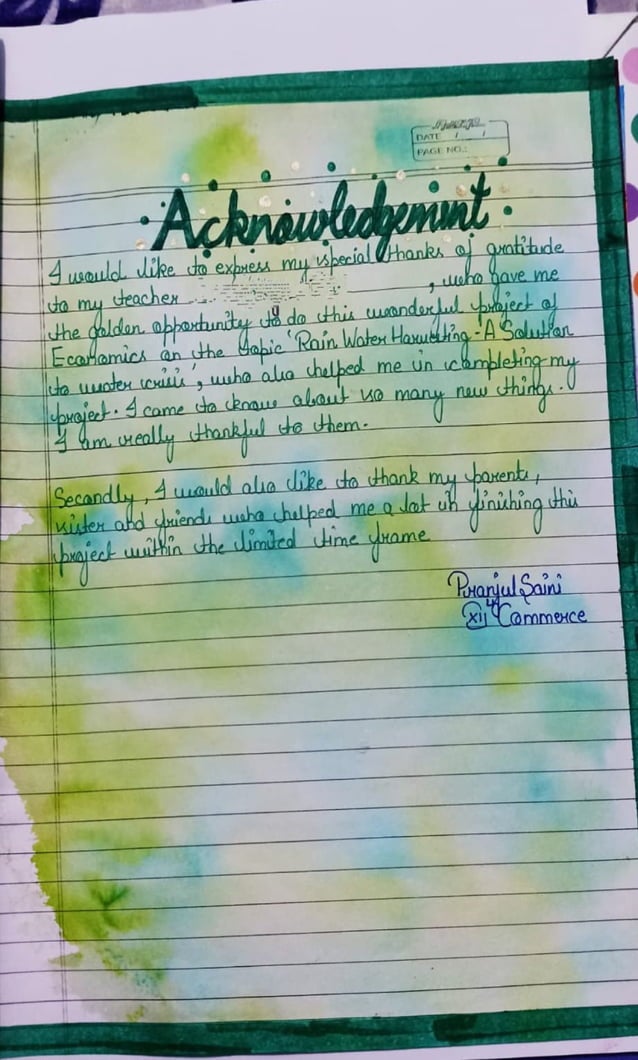 DATE / /
PAGE NO.:
Acknowledgement
I would like to express my special thanks of gratitude
to my teacher , who gave me
the golden opportunity to do this wonderful project of
Economics on the topic 'Rain Water Harvesting: A Solution
to water crisis', who also helped me in completing my
project. I came to know about so many new things.
I am really thankful to them.
Secondly, I would also like to thank my parents,
sister and friends who helped me a lot in finishing this
project within the limited time frame
Pranjul Saini
XII Commerce